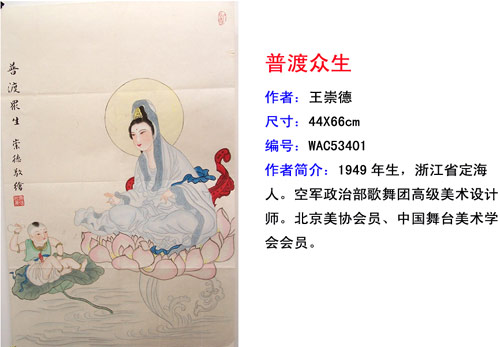 普渡眾生
崇德敬繪
普渡众生
作者：王崇德
尺寸：44X66cm
编号：WAC53401
作者简介：1949 年生，浙江省定海
人。空军政治部歌舞团高级美术设计
师。北京美协会员、中国舞台美术学
会会员。